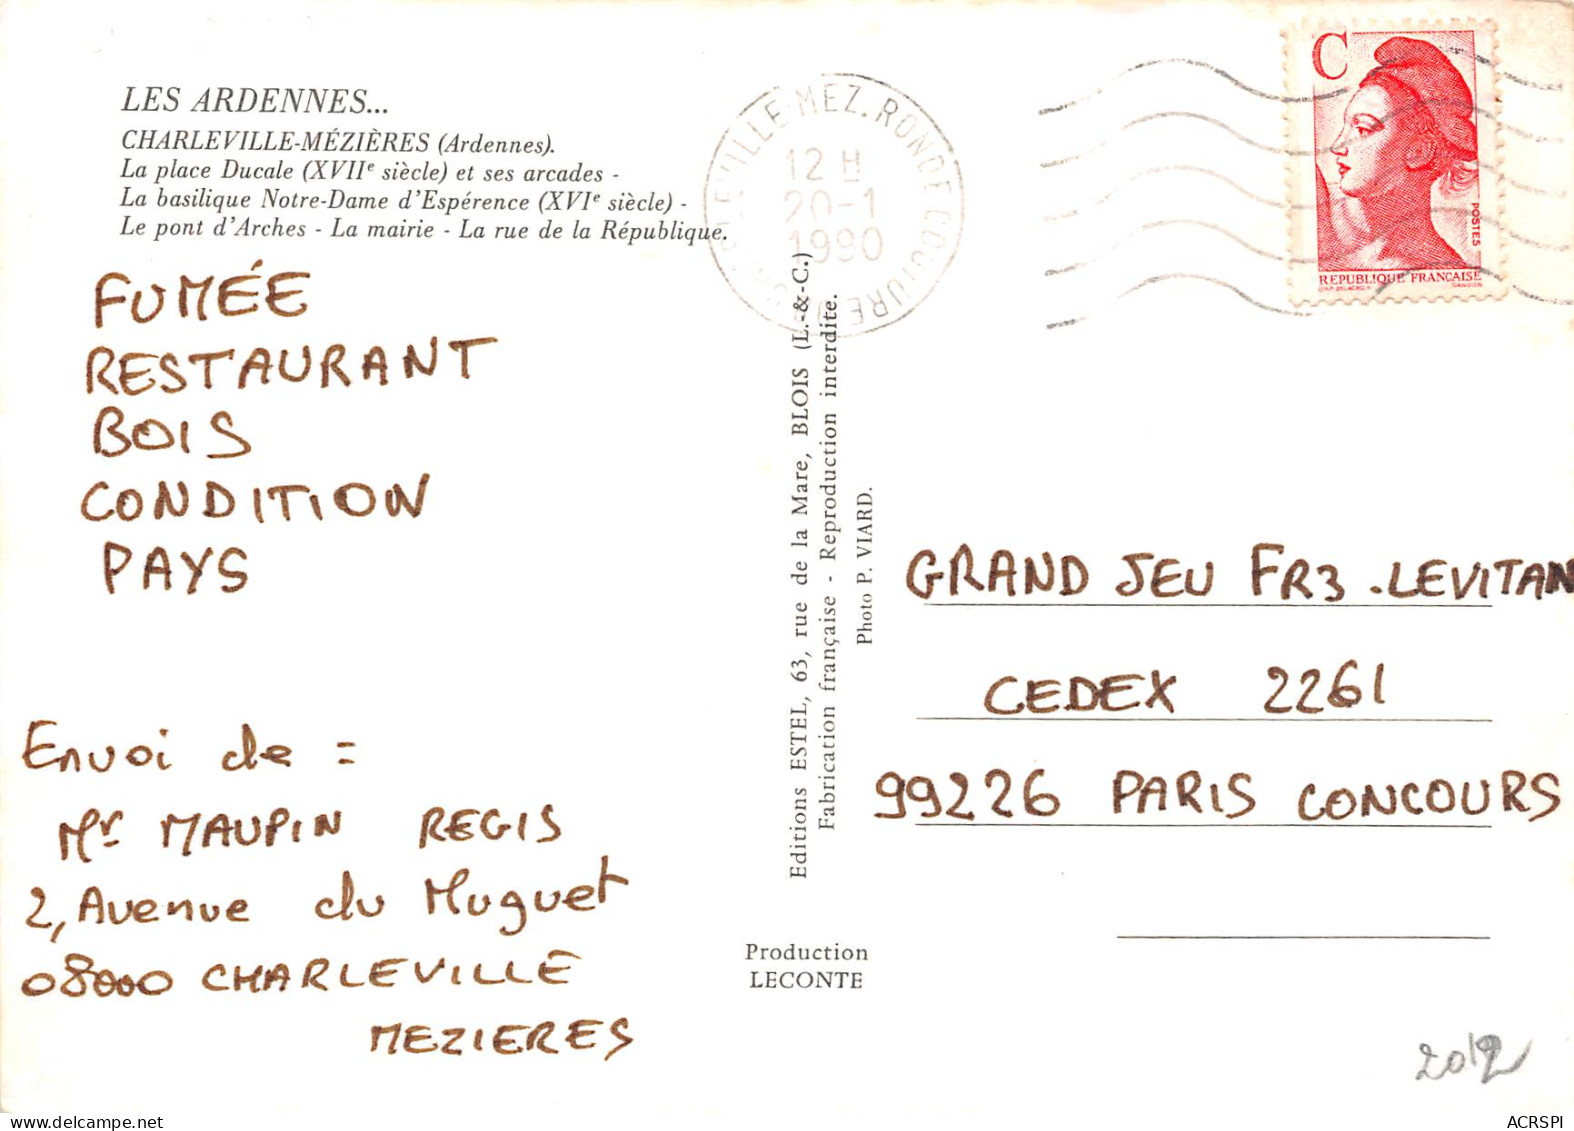 LES ARDENNES...
CHARLEVILLE-MÉZIÈRES (Ardennes).
La place Ducale (XVIIe siècle) et ses arcades -
La basilique Notre-Dame d'Espérence (XVIe siècle) -
Le pont d'Arches - La mairie - La rue de la République.
FUMÉE
RESTAURANT
BOIS
CONDITION
PAYS
Envoi de =
Mr MAUPIN REGIS
2, Avenue du Muguet
08000 CHARLEVILLE
MEZIERES
12 H
20-1
1990
Editions ESTEL, 63, rue de la Mare, BLOIS (L.-&-C.)
Fabrication française - Reproduction interdite.
Photo P. VIARD.
Production
LECONTE
C
POSTES
REPUBLIQUE FRANÇAISE
GRAND JEU FR3 .LEVITAN
CEDEX 2261
99226 PARIS CONCOURS
ACRSPI